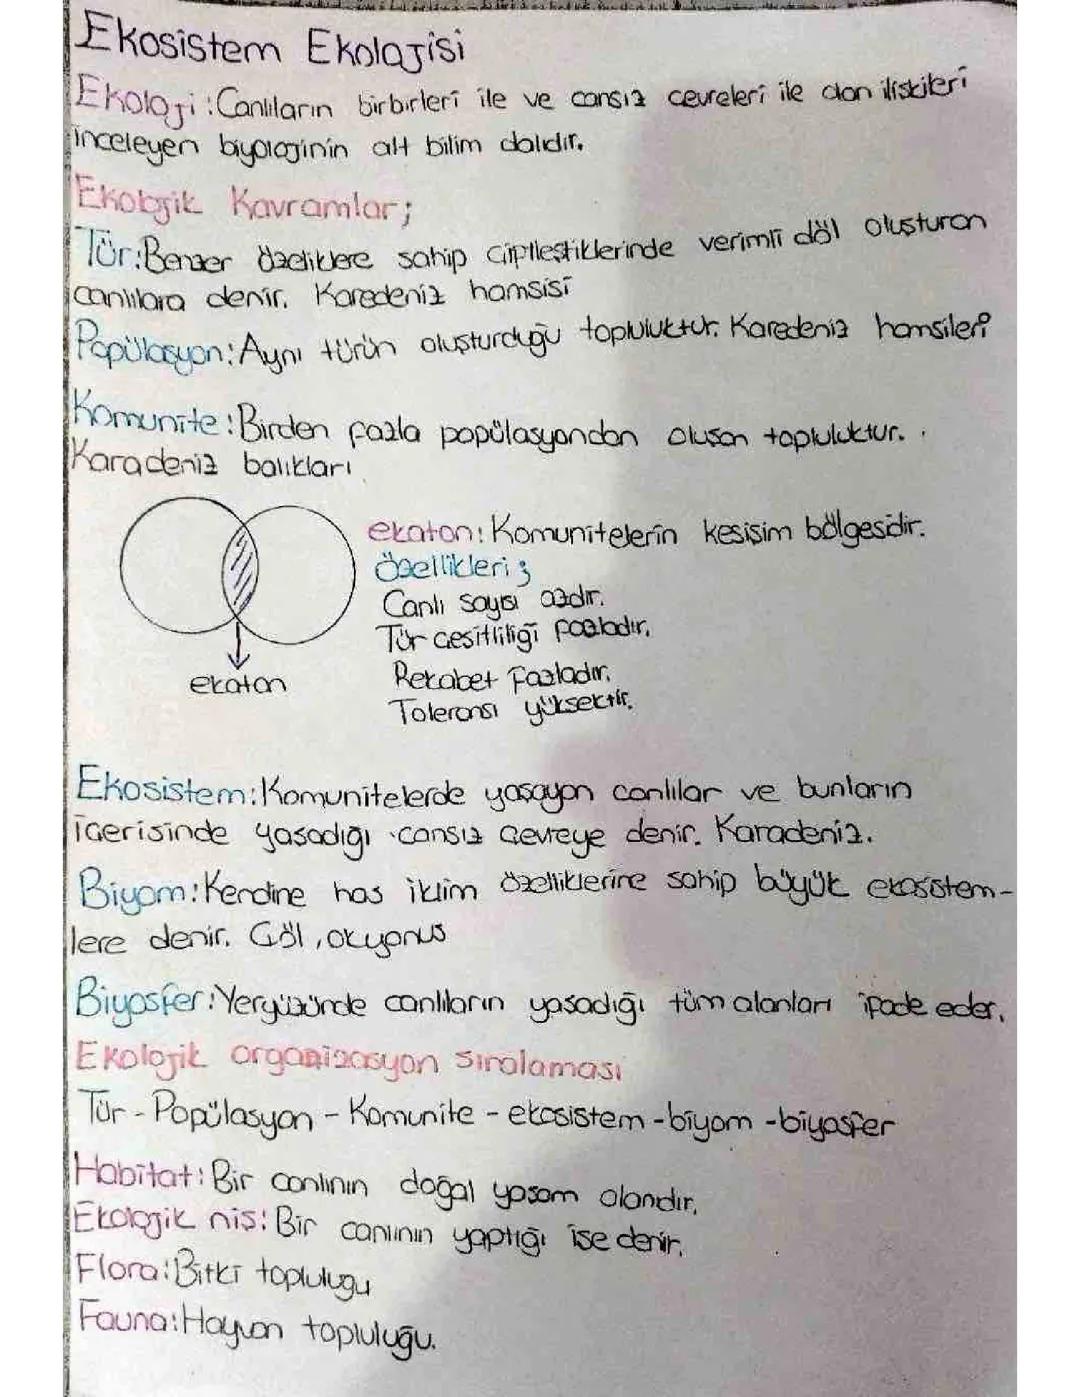 Ekosistem Ekolojisi
Ekoloji: Canlıların birbirleri ile ve cansız çevreleri ile olan ilişkileri
inceleyen biyolojinin alt bilim dalıdır.
Ekolojik Kavramlar;
Tür: Benzer özelliklere sahip çiftleştiklerinde verimli döl oluşturan
canlılara denir. Karedeniz hamsisi
Popülasyon: Aynı türün oluşturduğu topluluktur. Karedeniz hamsileri
Komunite: Birden fazla popülasyondan oluşan topluluktur.
Karadeniz balıkları
ekoton: Komunitelerin kesişim bölgesidir.
özellikleri;
Canlı sayısı azdır.
Tür çeşitliliği fazladır.
Rekabet fazladır.
Toleransı yüksektir.
ekoton
Ekosistem: Komunitelerde yaşayan canlılar ve bunların
içerisinde yaşadığı cansız çevreye denir. Karadeniz.
Biyom: Kendine has iklim özelliklerine sahip büyük ekosistem-
lere denir. Göl, okyonus
Biyosfer: Yeryüzünde canlıların yaşadığı tüm alanları ifade eder.
Ekolojik organizasyon sıralaması
Tür - Popülasyon - Komunite - ekosistem - biyom - biyosfer
Habitat: Bir canlının doğal yaşam alanıdır.
Ekolojik niş: Bir canlının yaptığı işe denir.
Flora: Bitki topluluğu
Fauna: Hayvan topluluğu.